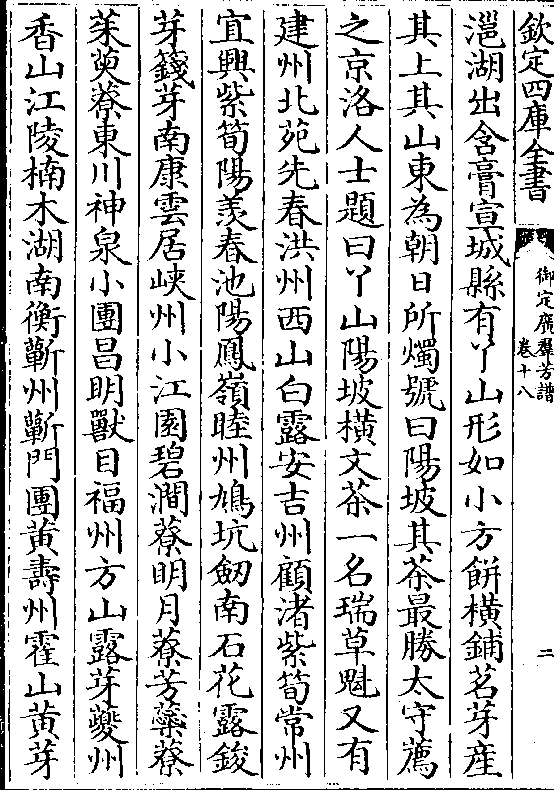 欽定四庫全書
御定廣羣芳譜
卷十八
二
㴩湖出含膏宣城縣有丫山形如小方餅橫鋪茗芽產
其上其山東為朝日所燭號曰陽坡其茶最勝太守薦
之京洛人士題曰丫山陽坡橫文茶一名瑞草魁又有
建州北苑先春洪州西山白露安吉州顧渚紫筍常州
宜興紫筍陽羨春池陽鳳嶺睦州鳩坑劒南石花露鋑
芽籛芽南康雲居峽州小江園碧澗藔明月藔芳蘂藔
茱萸藔東川神泉小團昌明獸目福州方山露芽夔州
香山江陵楠木湖南衡蘄州蘄門團黃壽州霍山黃芽